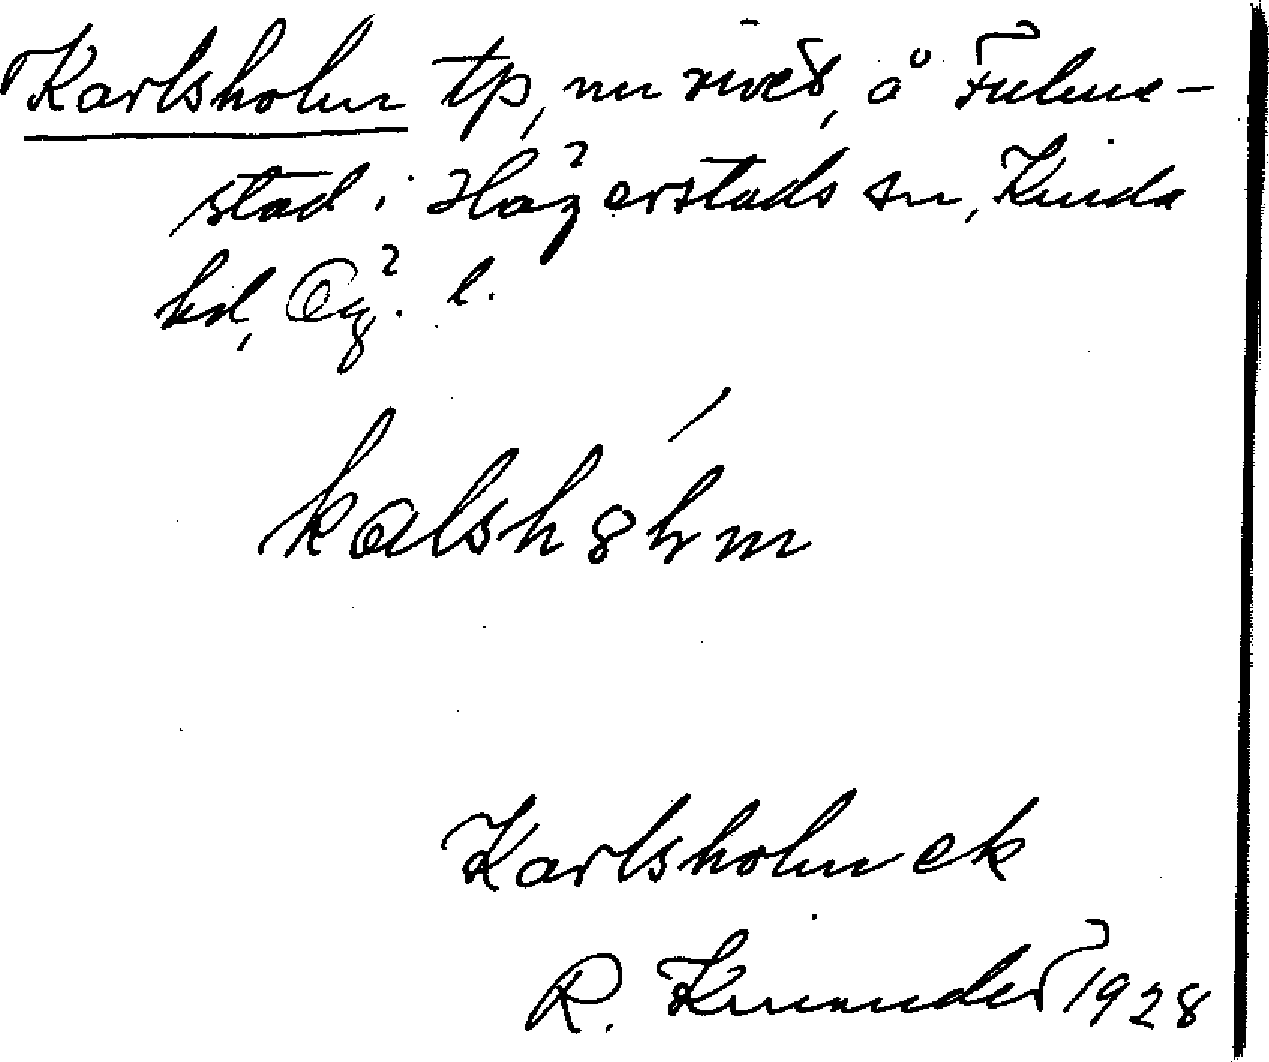 Karlsholm tp, nu rivet, å Fulme-
stad i Hägerstads sn, Kinda
hd, Ög. l.
kalshålm
Karlsholm ek
R. Kinander 1928